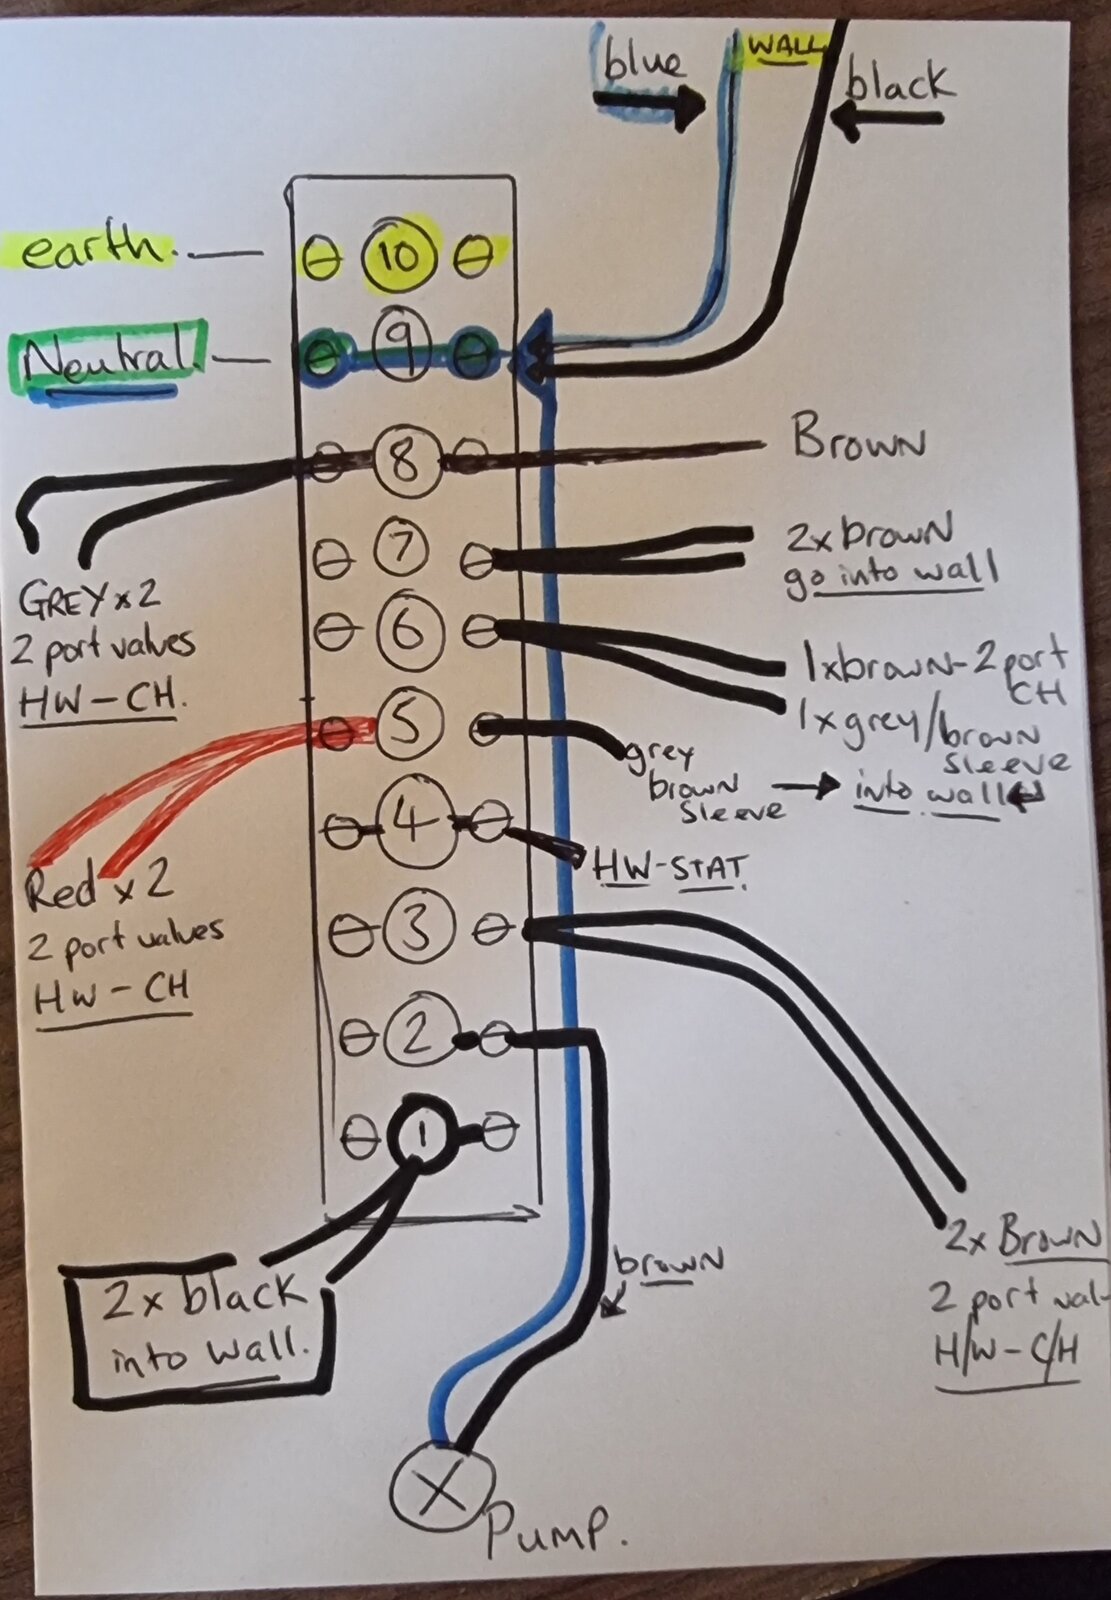 WALL
blue
black
earth.
10
Neutral.
9
8
Brown
GREY x 2
2 port valves
HW - CH.
7
2x brown
go into wall
6
1x brown - 2 port
CH
1 x grey/brown
sleeve
5
grey
brown
sleeve
into wall
Red x 2
2 port valves
HW - CH
4
HW - STAT.
3
2x Brown
2 port val
H/W - C/H
2
1
2 x black
into wall.
brown
X
Pump.